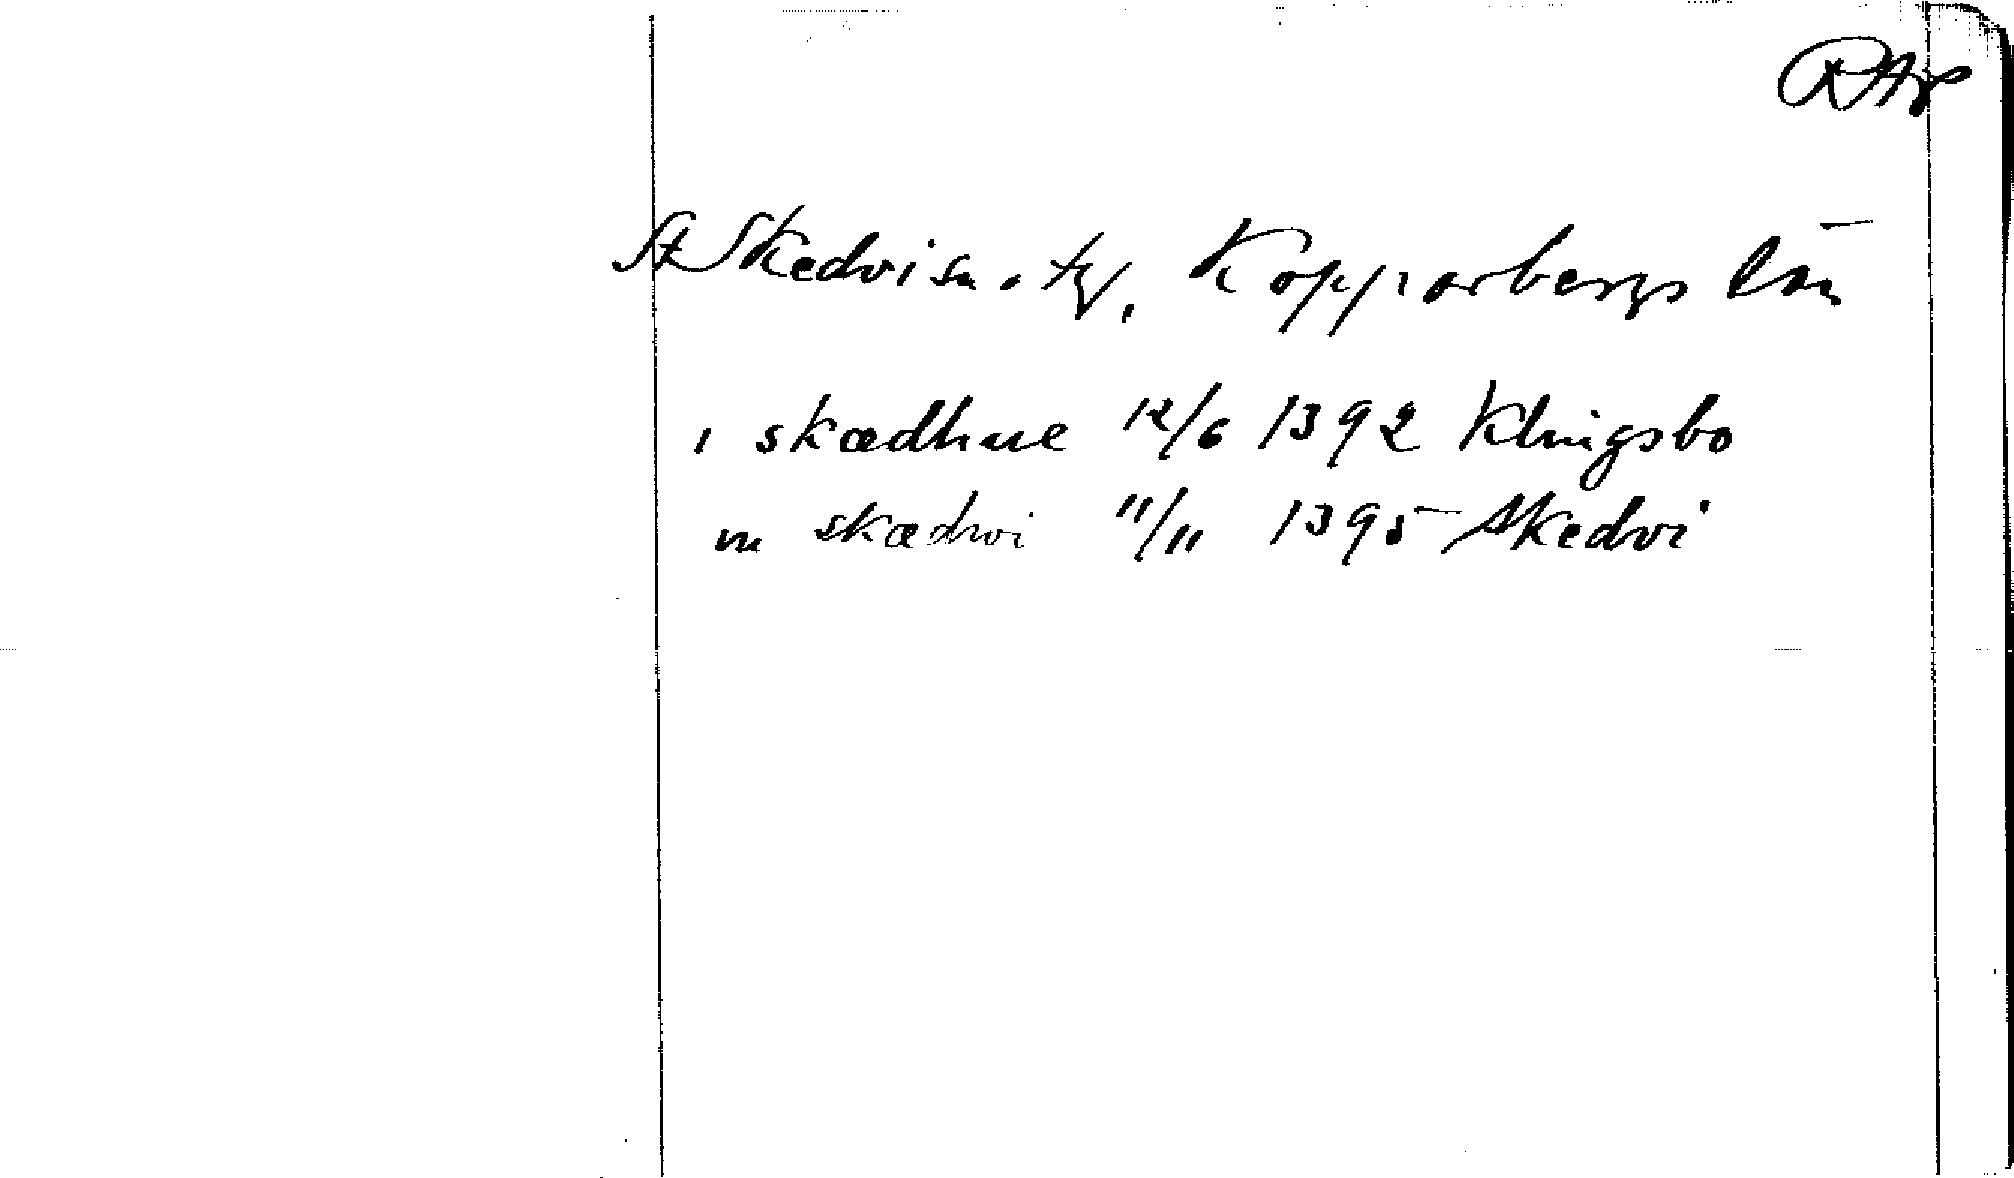 RAp
St Skedvi sn. tg, Kopparbergs län
i skædhue 12/6 1392 Klingsbo
in skædwi 11/11 1395 Skedvi